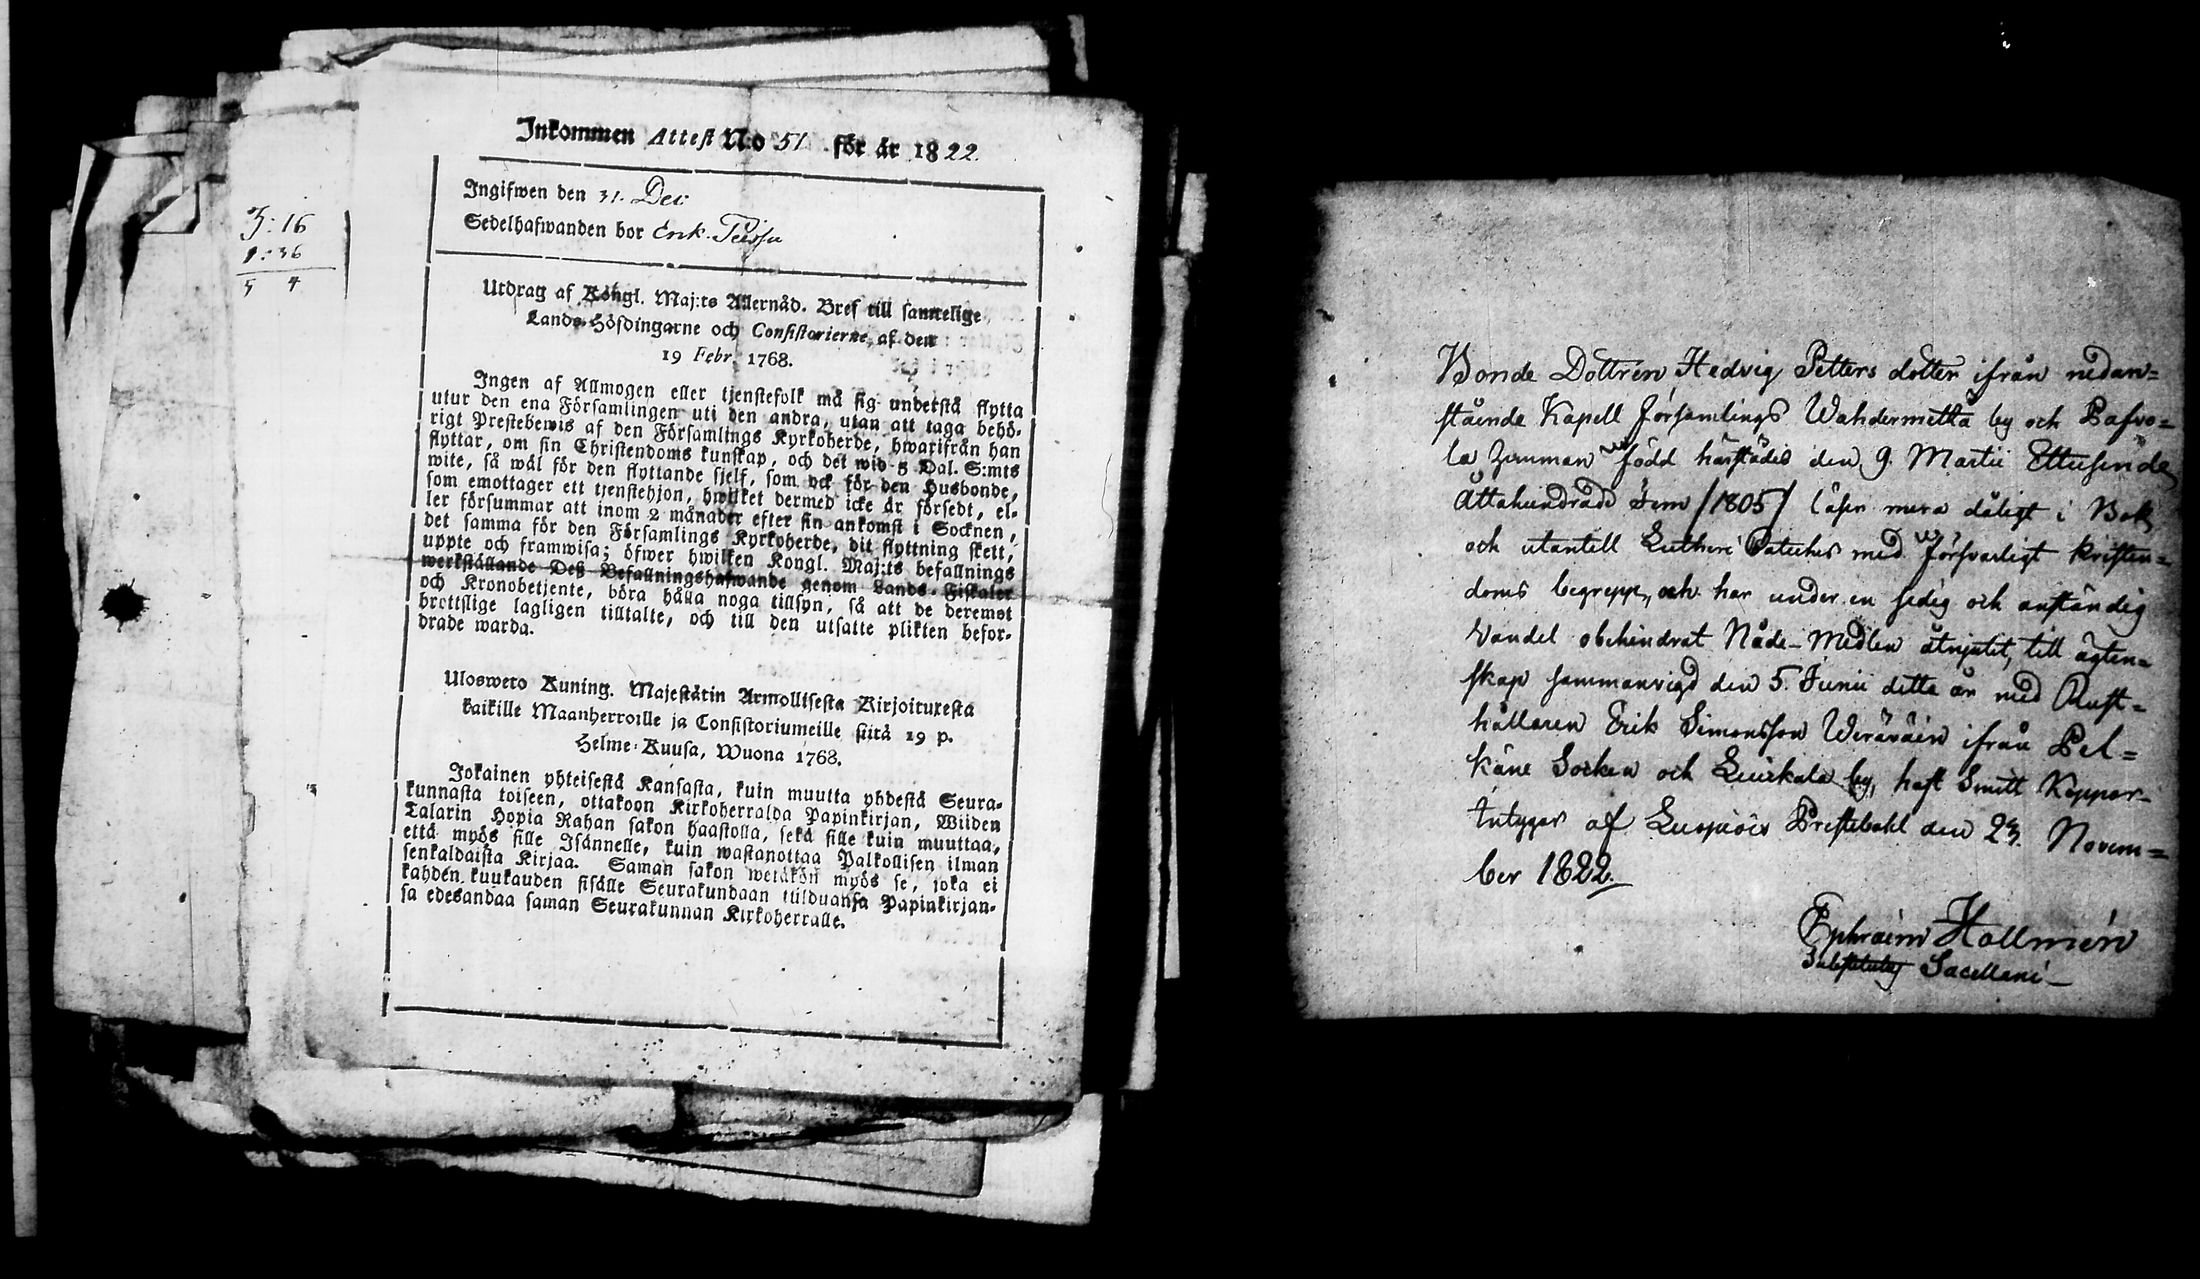 Inkommen Attest N:o 51 för år 1822.
Ingifwen den 31. Dec
Sedelhafwanden bor Erik
3: 16
1: 36
5 4
Utdrag af Kongl. Maj:ts Allernåd. Bref till samtelige
Lands-Höfdingarne och Consistorierne, af den
19 Febr. 1768.
Ingen af Allmogen eller tjenstefolk må sig understå flytta
utur den ena Församlingen uti den andra, utan att taga behö-
rigt Prestebewis af den Församlings Kyrkoherde, hwarifrån han
flyttar, om sin Christendoms kunskap, och det wid 5 Dal. S:mts
wite, så wäl för den flyttande sjelf, som ock för den Husbonde,
som emottager ett tjenstehjon, hwilket dermed icke är försedt, el-
ler försummar att inom 2 månader efter sin ankomst i Socknen,
det samma för den Församlings Kyrkoherde, dit flyttning skett,
uppte och framwisa; öfwer hwilken Kongl. Maj:ts befallnings
werkställande Deß Befallningshafwande genom Lands-Fiskaler
och Kronobetjente, böra hålla noga tillsyn, så att de deremot
brottslige lagligen tilltalte, och till den utsatte plikten befor-
drade warda.
Ulosweto Kuning. Majestätin Armollisesta Kirjoituxesta
kaikille Maanherroille ja Consistoriumeille siitä 19 p.
Helme-Kuusa, Wuona 1768.
Jokainen yhteisestä Kansasta, kuin muutta yhdestä Seura-
kunnasta toiseen, ottakoon Kirkoherralda Papinkirjan, Wiiden
Talarin Hopia Rahan sakon haastolla, sekä sille kuin muuttaa,
että myös sille Isännelle, kuin wastanottaa Palkollisen ilman
senkaldaista Kirjaa. Saman sakon wetäkön myös se, joka ei
kahden kuukauden sisälle Seurakundaan tulduansa Papinkirjan-
sa edesandaa saman Seurakunnan Kirkoherralle.
Bonde Dottren Hedvig Petters dotter ifrån nedan=
stående Kapell församlings Wahdermetta by och Pafvo=
la hemman född härstädes den 9. Martii Ettusende
Åttahundrade Fem /1805/ läser mera dåligt i Bok
och utantill Lutheri Cateches med försvarligt kristen=
doms begrepp, och har under en sedig och anständig
vandel obehindrat Nåde-Medlen åtnjutit, till ägten=
skap sammanvigd den 5. Junii detta år med Rust=
hållaren Erik Simonsson ifrån Pel=
käne Socken och by, haft Smitt Koppor-
Intygar af Luopiois Prestebohl den 23. Novem=
ber 1822.
Ephraim Hallmén
Substitutus Sacellani